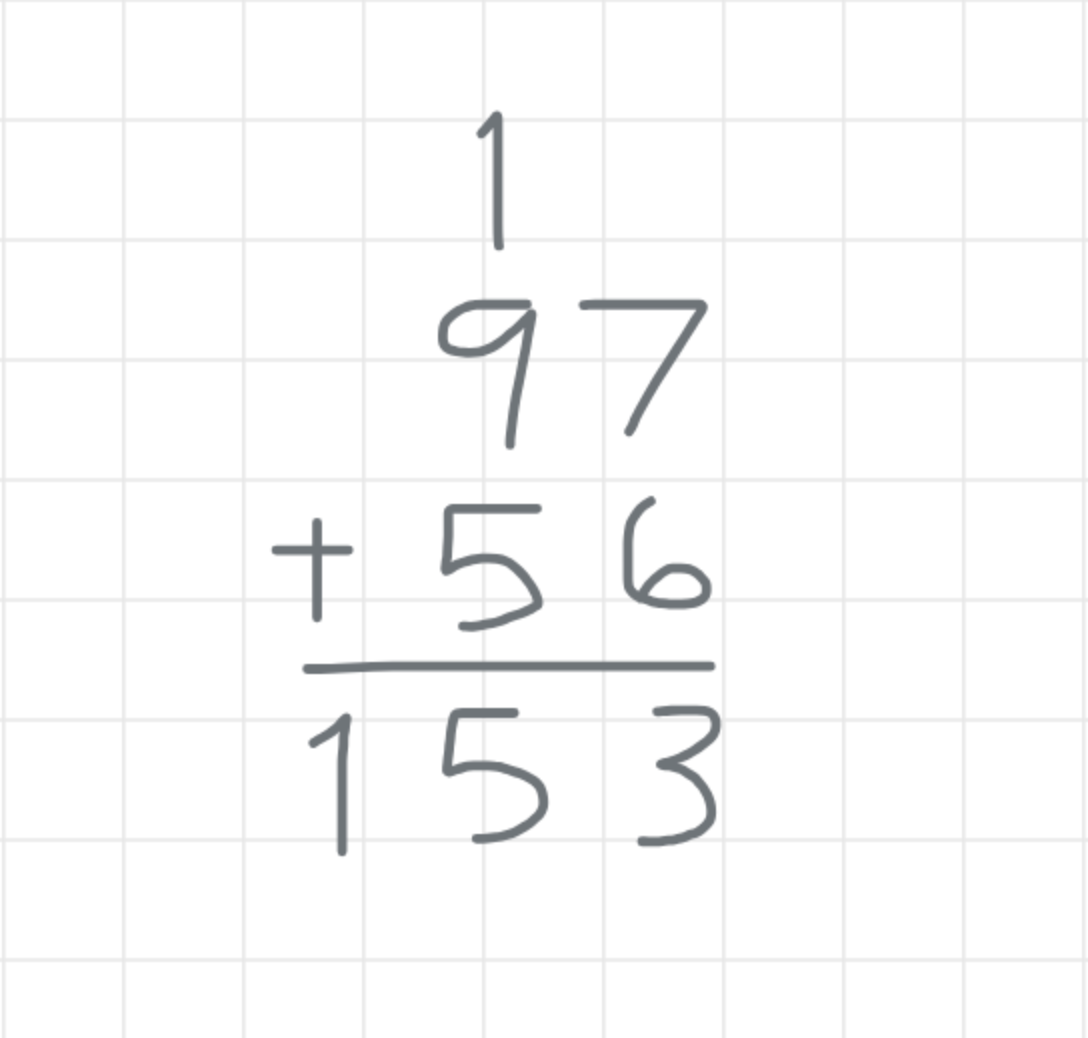 1
97
+ 56
153